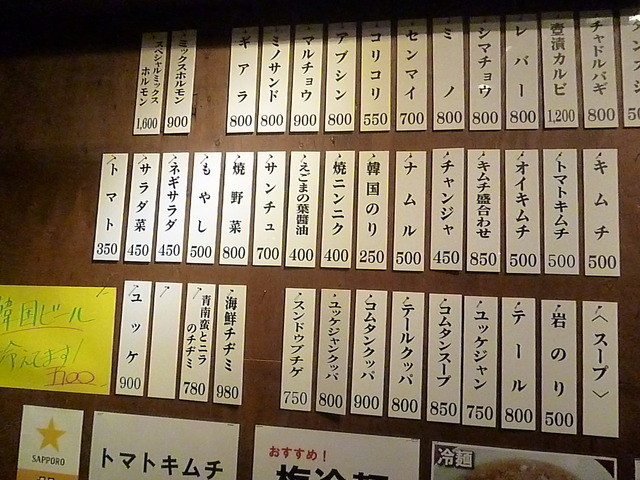 チャドルバギ 800
壺漬カルビ 1,200
レバー 800
シマチョウ 800
ミノ 800
センマイ 700
コリコリ 550
アブシン 800
マルチョウ 900
ミノサンド 800
ギアラ 800
ミックスホルモン 900
スペシャルミックス
ホルモン 1,600
キムチ 500
トマトキムチ 500
オイキムチ 500
キムチ盛合わせ 850
チャンジャ 450
ナムル 500
韓国のり 250
焼ニンニク 400
えごまの葉醤油 400
サンチュ 700
焼野菜 800
もやし 500
ネギサラダ 450
サラダ菜 450
トマト 350
〈スープ〉
岩のり 500
テール 800
ユッケジャン 750
コムタンスープ 850
テールクッパ 800
コムタンクッパ 900
ユッケジャンクッパ 800
スンドゥブチゲ 750
海鮮チヂミ 980
青南蛮とニラ
のチヂミ 780
ユッケ 900
韓国ビール
冷えてます!
SAPPORO
トマトキムチ
おすすめ!
梅冷麺
冷麺